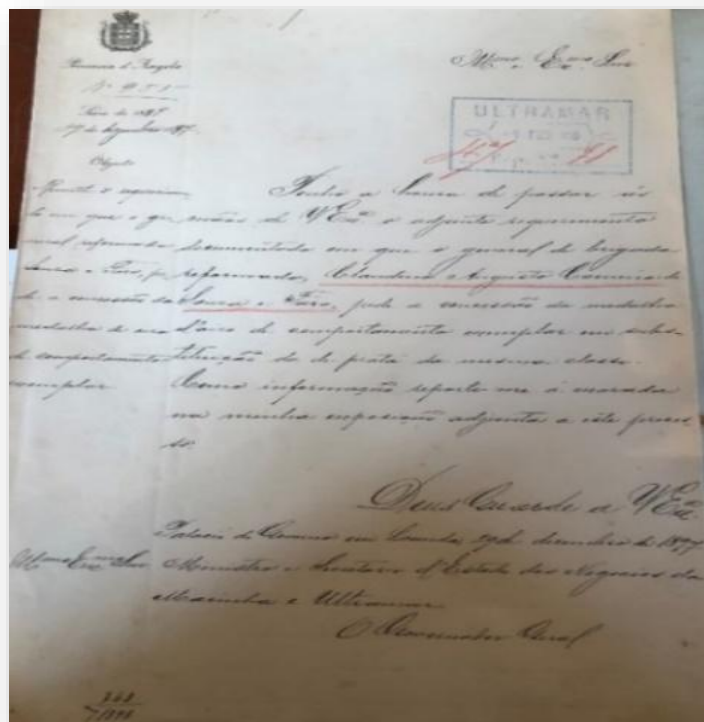 Provincia d'Angola
Serie de 1897
Objecto
Illmo e Exmo Snr
ULTRAMAR
Remette o requerimen-
to em que o gen
neral reformado
Souza e Faro, pe
de a concessão da
medalha de ouro
de comportamento
exemplar
Tenho a honra de passar ás
mãos de VExa o adjunto requerimento
documentado em que o general de brigada
reformado, Claudina Augusto Carneiro de
Souza e Faro, pede a concessão da medalha
d'ouro de comportamento exemplar em subs-
tituição da de prata da mesma classe.
Como informação reporto me á
na minha exposição adjunta a este proces
so.
Deus Guarde a VExa
Palacio do Governo em Loanda, de dezembro de 1897
Illmo e Exmo Snr Ministro e Secretario d'Estado dos Negocios da
Marinha e Ultramar
O Governador Geral